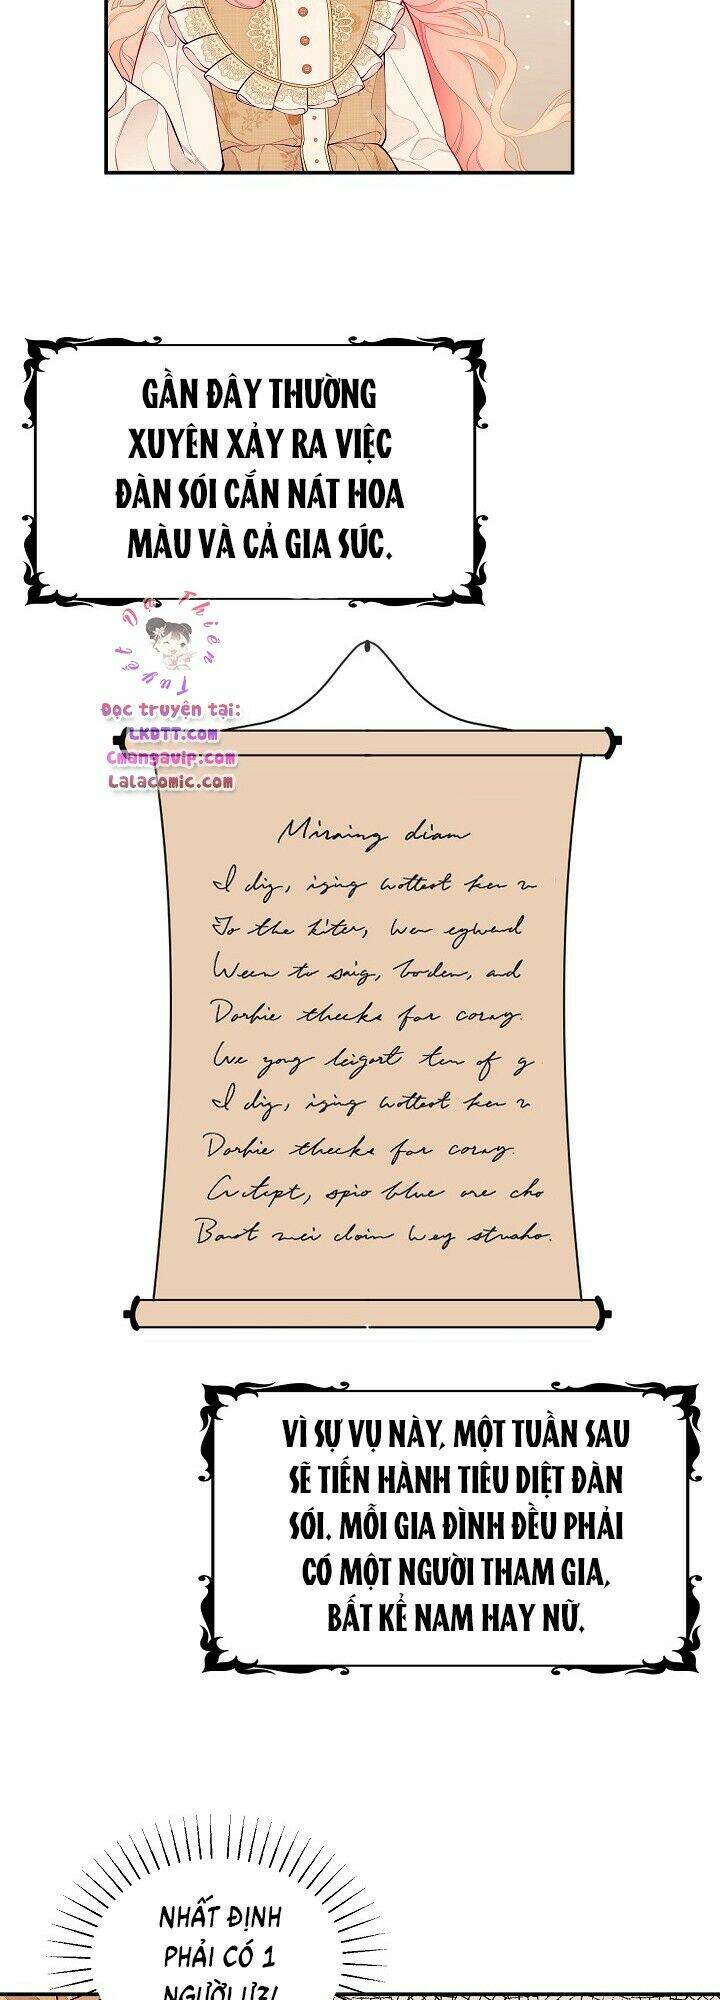 GẦN ĐÂY THƯỜNG
XUYÊN XẢY RA VIỆC
ĐÀN SÓI CẮN NÁT HOA
MÀU VÀ CẢ GIA SÚC.
Tuyết Dạ Thiên
Đọc truyện tại:
LKDTT.com
Cmangavip.com
Lalacomic.com
Miraing diam
I diz, ising wottest ken
To the kiter, Wen eywerd
Ween to saig, boden, and
Dorhie thecks for coray.
We yong leigort ten of g
I diz, ising wottest ken
Dorhie thecks for coray.
spio blue are cho
mei cloin Wey
VÌ SỰ VỤ NÀY, MỘT TUẦN SAU
SẼ TIẾN HÀNH TIÊU DIỆT ĐÀN
SÓI. MỖI GIA ĐÌNH ĐỀU PHẢI
CÓ MỘT NGƯỜI THAM GIA,
BẤT KỂ NAM HAY NỮ.
NHẤT ĐỊNH
PHẢI CÓ 1
NGƯỜI Ư?!